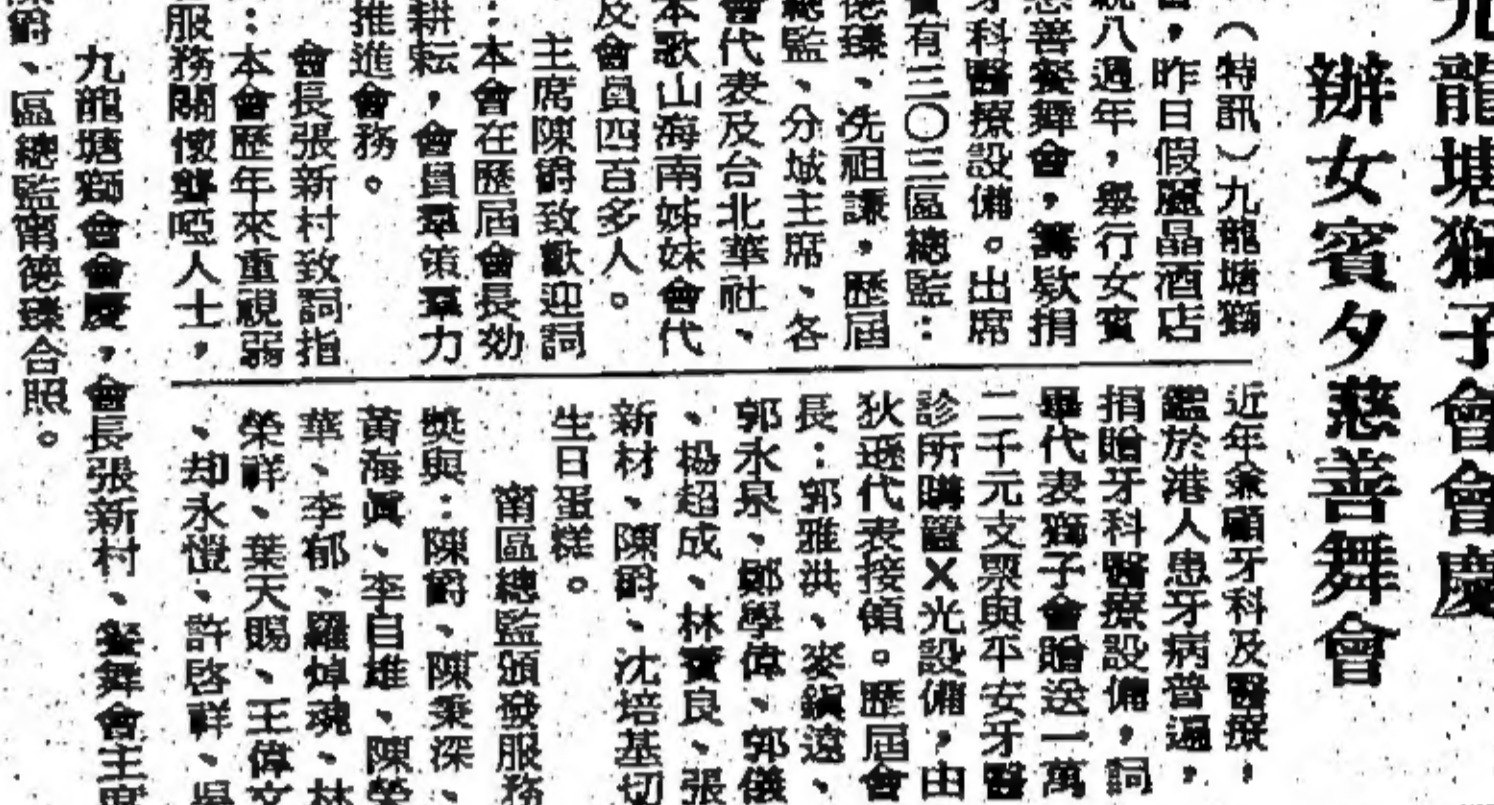 九龍塘獅子會會慶
辦女賓夕慈善舞會
（特訊）九龍塘獅
，昨日假麗晶酒店
八週年，舉行女賓
慈善餐舞會，籌款捐
牙科醫療設備。出席
有三〇三區總監：
德臻、冼祖謙，歷屆
總監、分域主席、各
會代表及台北華社、
本歌山海南姊妹會代
及會員四百多人。
主席陳爵致歡迎詞
：本會在歷屆會長効
耕耘，會員羣策羣力
推進會務。
會長張新村致詞指
：本會歷年來重視弱
服務關懷聾啞人士，
近年兼顧牙科及醫療，
鑑於港人患牙病普遍，
捐贈牙科醫療設備，詞
畢代表獅子會贈送一萬
二千元支票與平安牙醫
診所購置X光設備，由
狄遜代表接領。歷屆會
長：郭雅洪、麥鎮遠、
郭永泉、鄭學偉、郭儀
、楊超成、林寶良、張
新材、陳爵、沈培基切
生日蛋糕。
南區總監頒發服務
獎與：陳爵、陳秉深、
黃海眞、李自雄、陳榮
華、李郁、羅焯魂、林
榮祥、葉天賜、王偉文
、却永愷、許啓祥、吳
九龍塘獅會會慶，會長張新村、餐舞會主席
陳爵、區總監甯德臻合照。